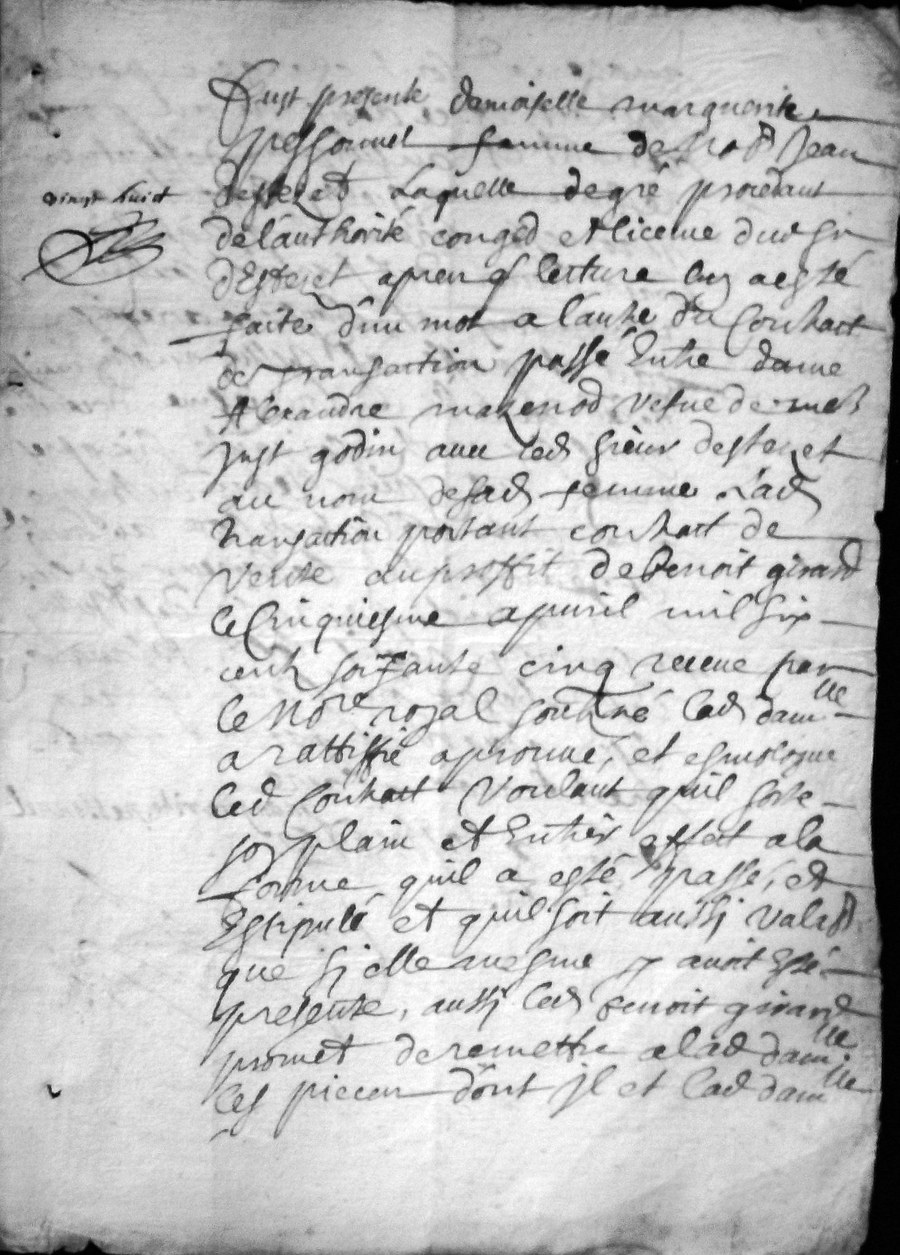 Fust presente damoiselle marguerite
pessonnel femme de Jean
vingt huict
desteret Laquelle de gré procedant
de lauthorité conged et licence dud sr
desteret apres q lecture luy a esté
faite dun mot a lautre du Contract
de transaction passé Entre dame
Alexandre mazenod vefve de
Just godin avec led sieur desteret
au nom de sad femme Lad
transaction portant contract de
vente au proffit de Benoit girard
le Cinquiesme apvril mil six
cents soixante cinq receue par
le nore royal soubsné lad damlle
a rattiffié aprouvé, et esmologué
led Contract Voulant quil sorte
son plain et Entier effect a la
forme quil a esté passé, et
Estipulé et quil soit aussi valable
que sj elle mesme y avoit esté
presente, aussj led benoit girard
promet de remettre a lad damlle
les pieces dont jl et lad damlle